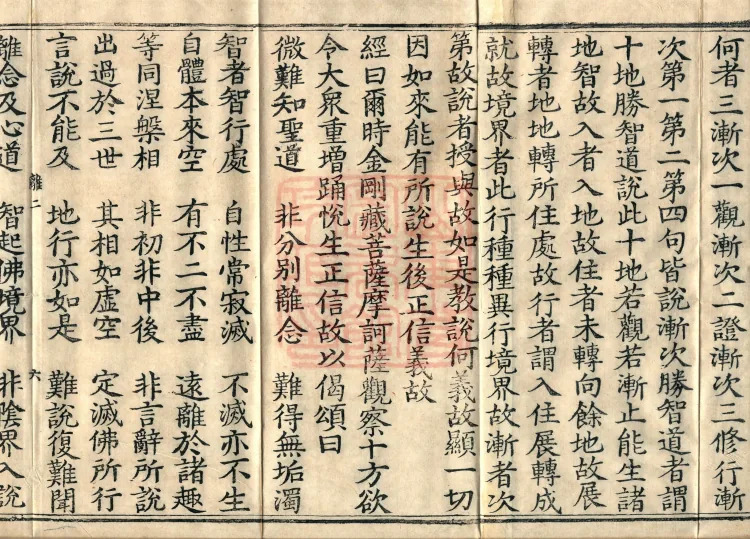 何者三漸次一觀漸次二證漸次三修行漸
次第一第二第四句皆說漸次勝智道者謂
十地勝智道說此十地若觀若漸止能生諸
地智故入者入地故住者未轉向餘地故展
轉者地地轉所住處故行者謂入住展轉成
就故境界者此行種種異行境界故漸者次
第故說者授與故如是教說何義故顯一切
因如來能有所說生後正信義故
經曰爾時金剛藏菩薩摩訶薩觀察十方欲
令大眾重增踊悅生正信故以偈頌曰
微難知聖道 非分別離念 難得無垢濁
智者智行處 自性常寂滅 不滅亦不生
自體本來空 有不二不盡 遠離於諸趣
等同涅槃相 非初非中後 非言辭所說
出過於三世 其相如虛空 定滅佛所行
言說不能及 地行亦如是 難說復難聞
離二 六
離念及心道 智起佛境界 非陰界入說